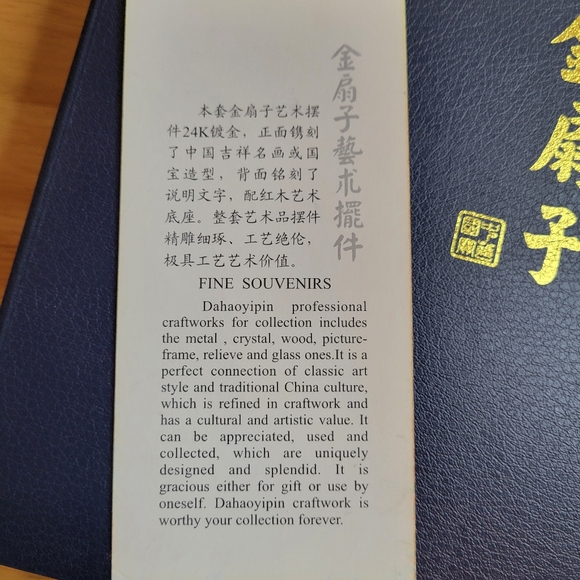 金扇子藝术擺件
本套金扇子艺术摆
件24K镀金，正面镌刻
了中国吉祥名画或国
宝造型，背面铭刻了
说明文字，配红木艺术
底座。整套艺术品摆件
精雕细琢、工艺绝伦，
极具工艺艺术价值。
FINE SOUVENIRS
Dahaoyipin professional
craftworks for collection includes
the metal , crystal, wood, picture-
frame, relieve and glass ones.It is a
perfect connection of classic art
style and traditional China culture,
which is refined in craftwork and
has a cultural and artistic value. It
can be appreciated, used and
collected, which are uniquely
designed and splendid. It is
gracious either for gift or use by
oneself. Dahaoyipin craftwork is
worthy your collection forever.
金扇子